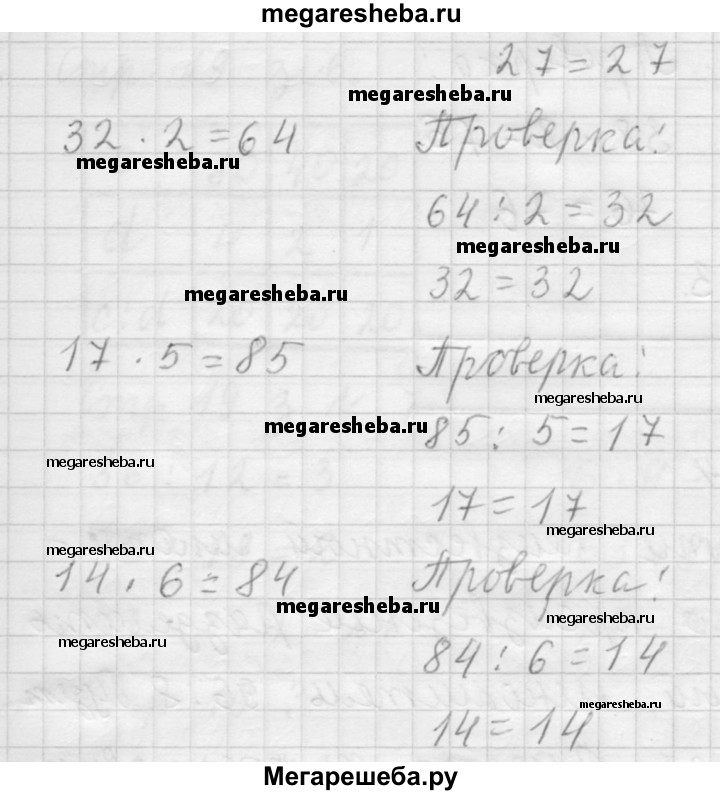 megaresheba.ru
27 = 27
megaresheba.ru
32 · 2 = 64 Проверка:
megaresheba.ru
64 : 2 = 32
megaresheba.ru
megaresheba.ru 32 = 32
17 · 5 = 85 Проверка:
megaresheba.ru
megaresheba.ru 85 : 5 = 17
megaresheba.ru
17 = 17
megaresheba.ru
megaresheba.ru
14 · 6 = 84 Проверка:
megaresheba.ru
megaresheba.ru
megaresheba.ru 84 : 6 = 14
megaresheba.ru
14 = 14
Мегарешеба.ру